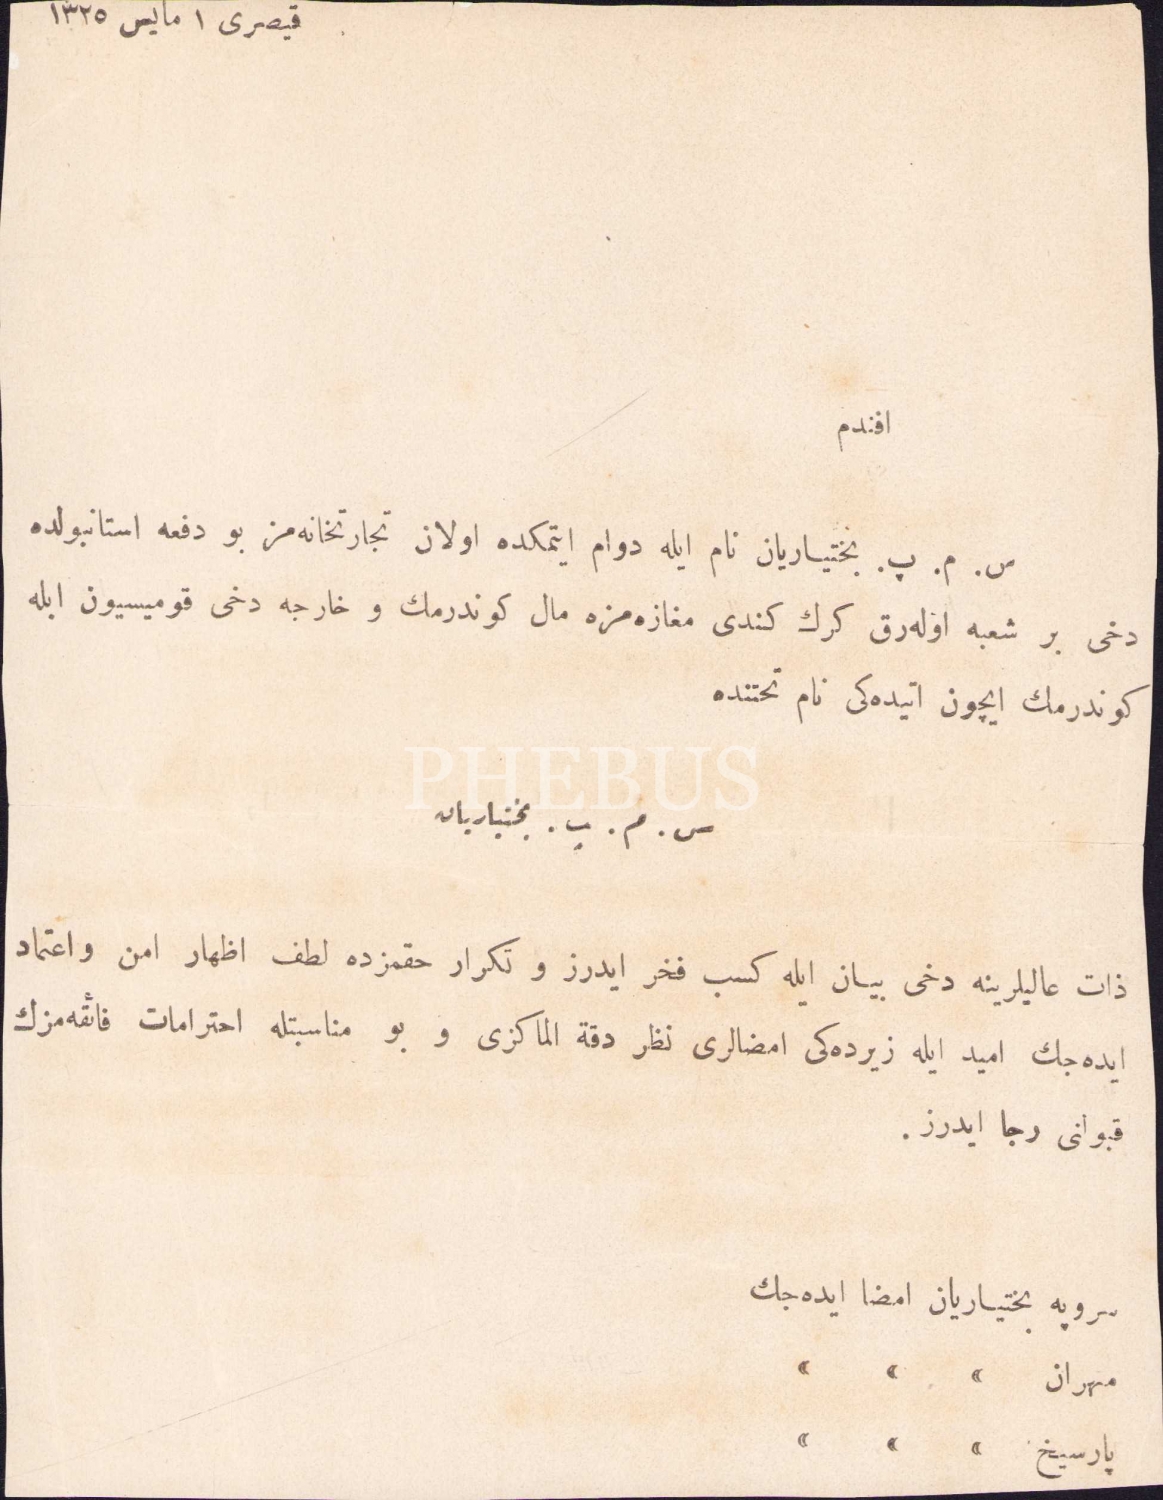 قیصری ١ مایس ١٣٢٥
افندم
س. م. پ. بختیاریان نام ایله دوام ایتمکده اولان تجارتخانه‌مز بو دفعه استانبولده
دخی بر شعبه اوله‌رق كرك كندی مغازه‌مزه مال كوندرمك و خارجه دخی قومیسیون ایله
كوندرمك ایچون اتیده‌كی نام تحتنده
PHEBUS
س. م. پ. بختیاریان
ذات عالیلرینه دخی بیان ایله كسب فخر ایدرز و تكرار حقمزده لطف اظهار امن واعتماد
ایده‌جك امید ایله زیرده‌كی امضالری نظر دقة الماكزی و بو مناسبتله احترامات فائقه‌مزك
قبولنی رجا ایدرز.
سروپه بختیاریان امضا ایده‌جك
مهران » » »
پارسیغ » » »